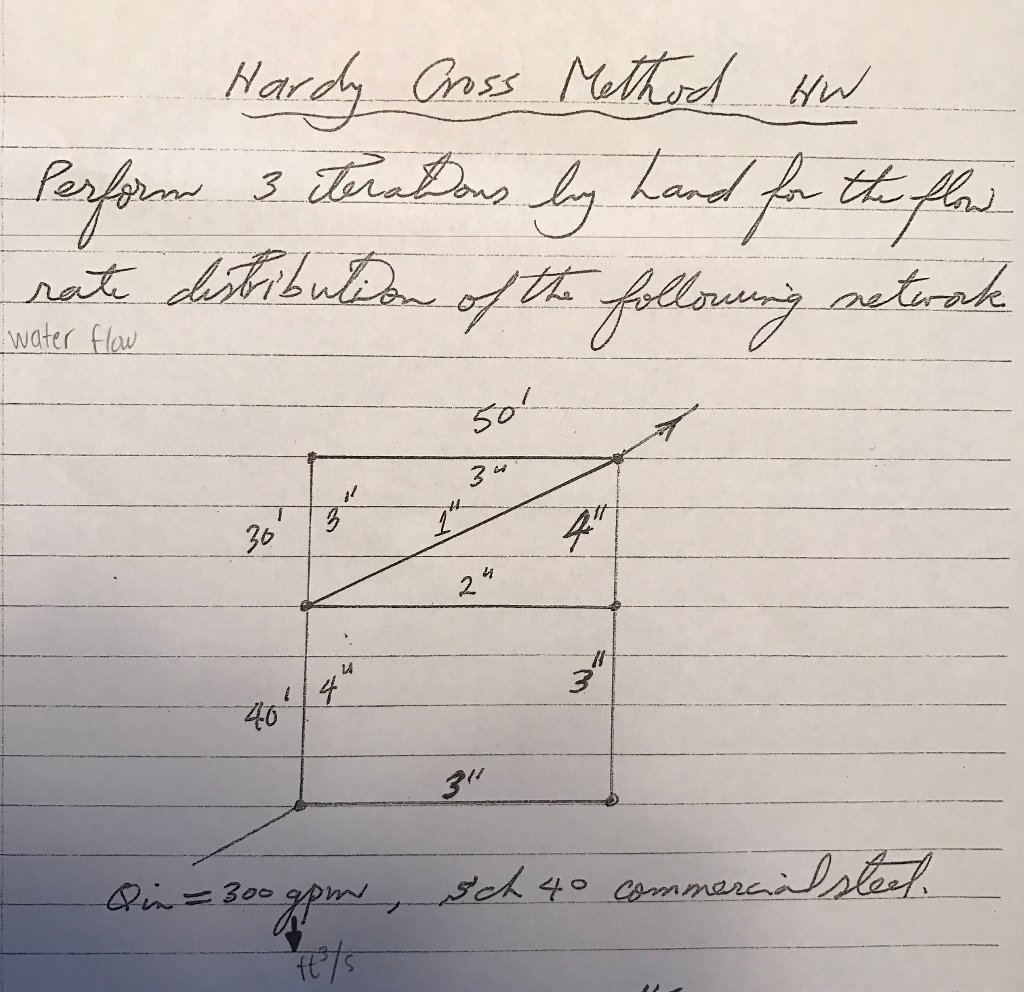 Hardy Cross Method HW
Perform 3 iterations by hand for the flow
rate distribution of the following network
water flow
50'
3"
30'
3"
1"
4"
2"
40'
4"
3"
3"
Qin = 300 gpm, sch 40 commercial steel.
ft³/s